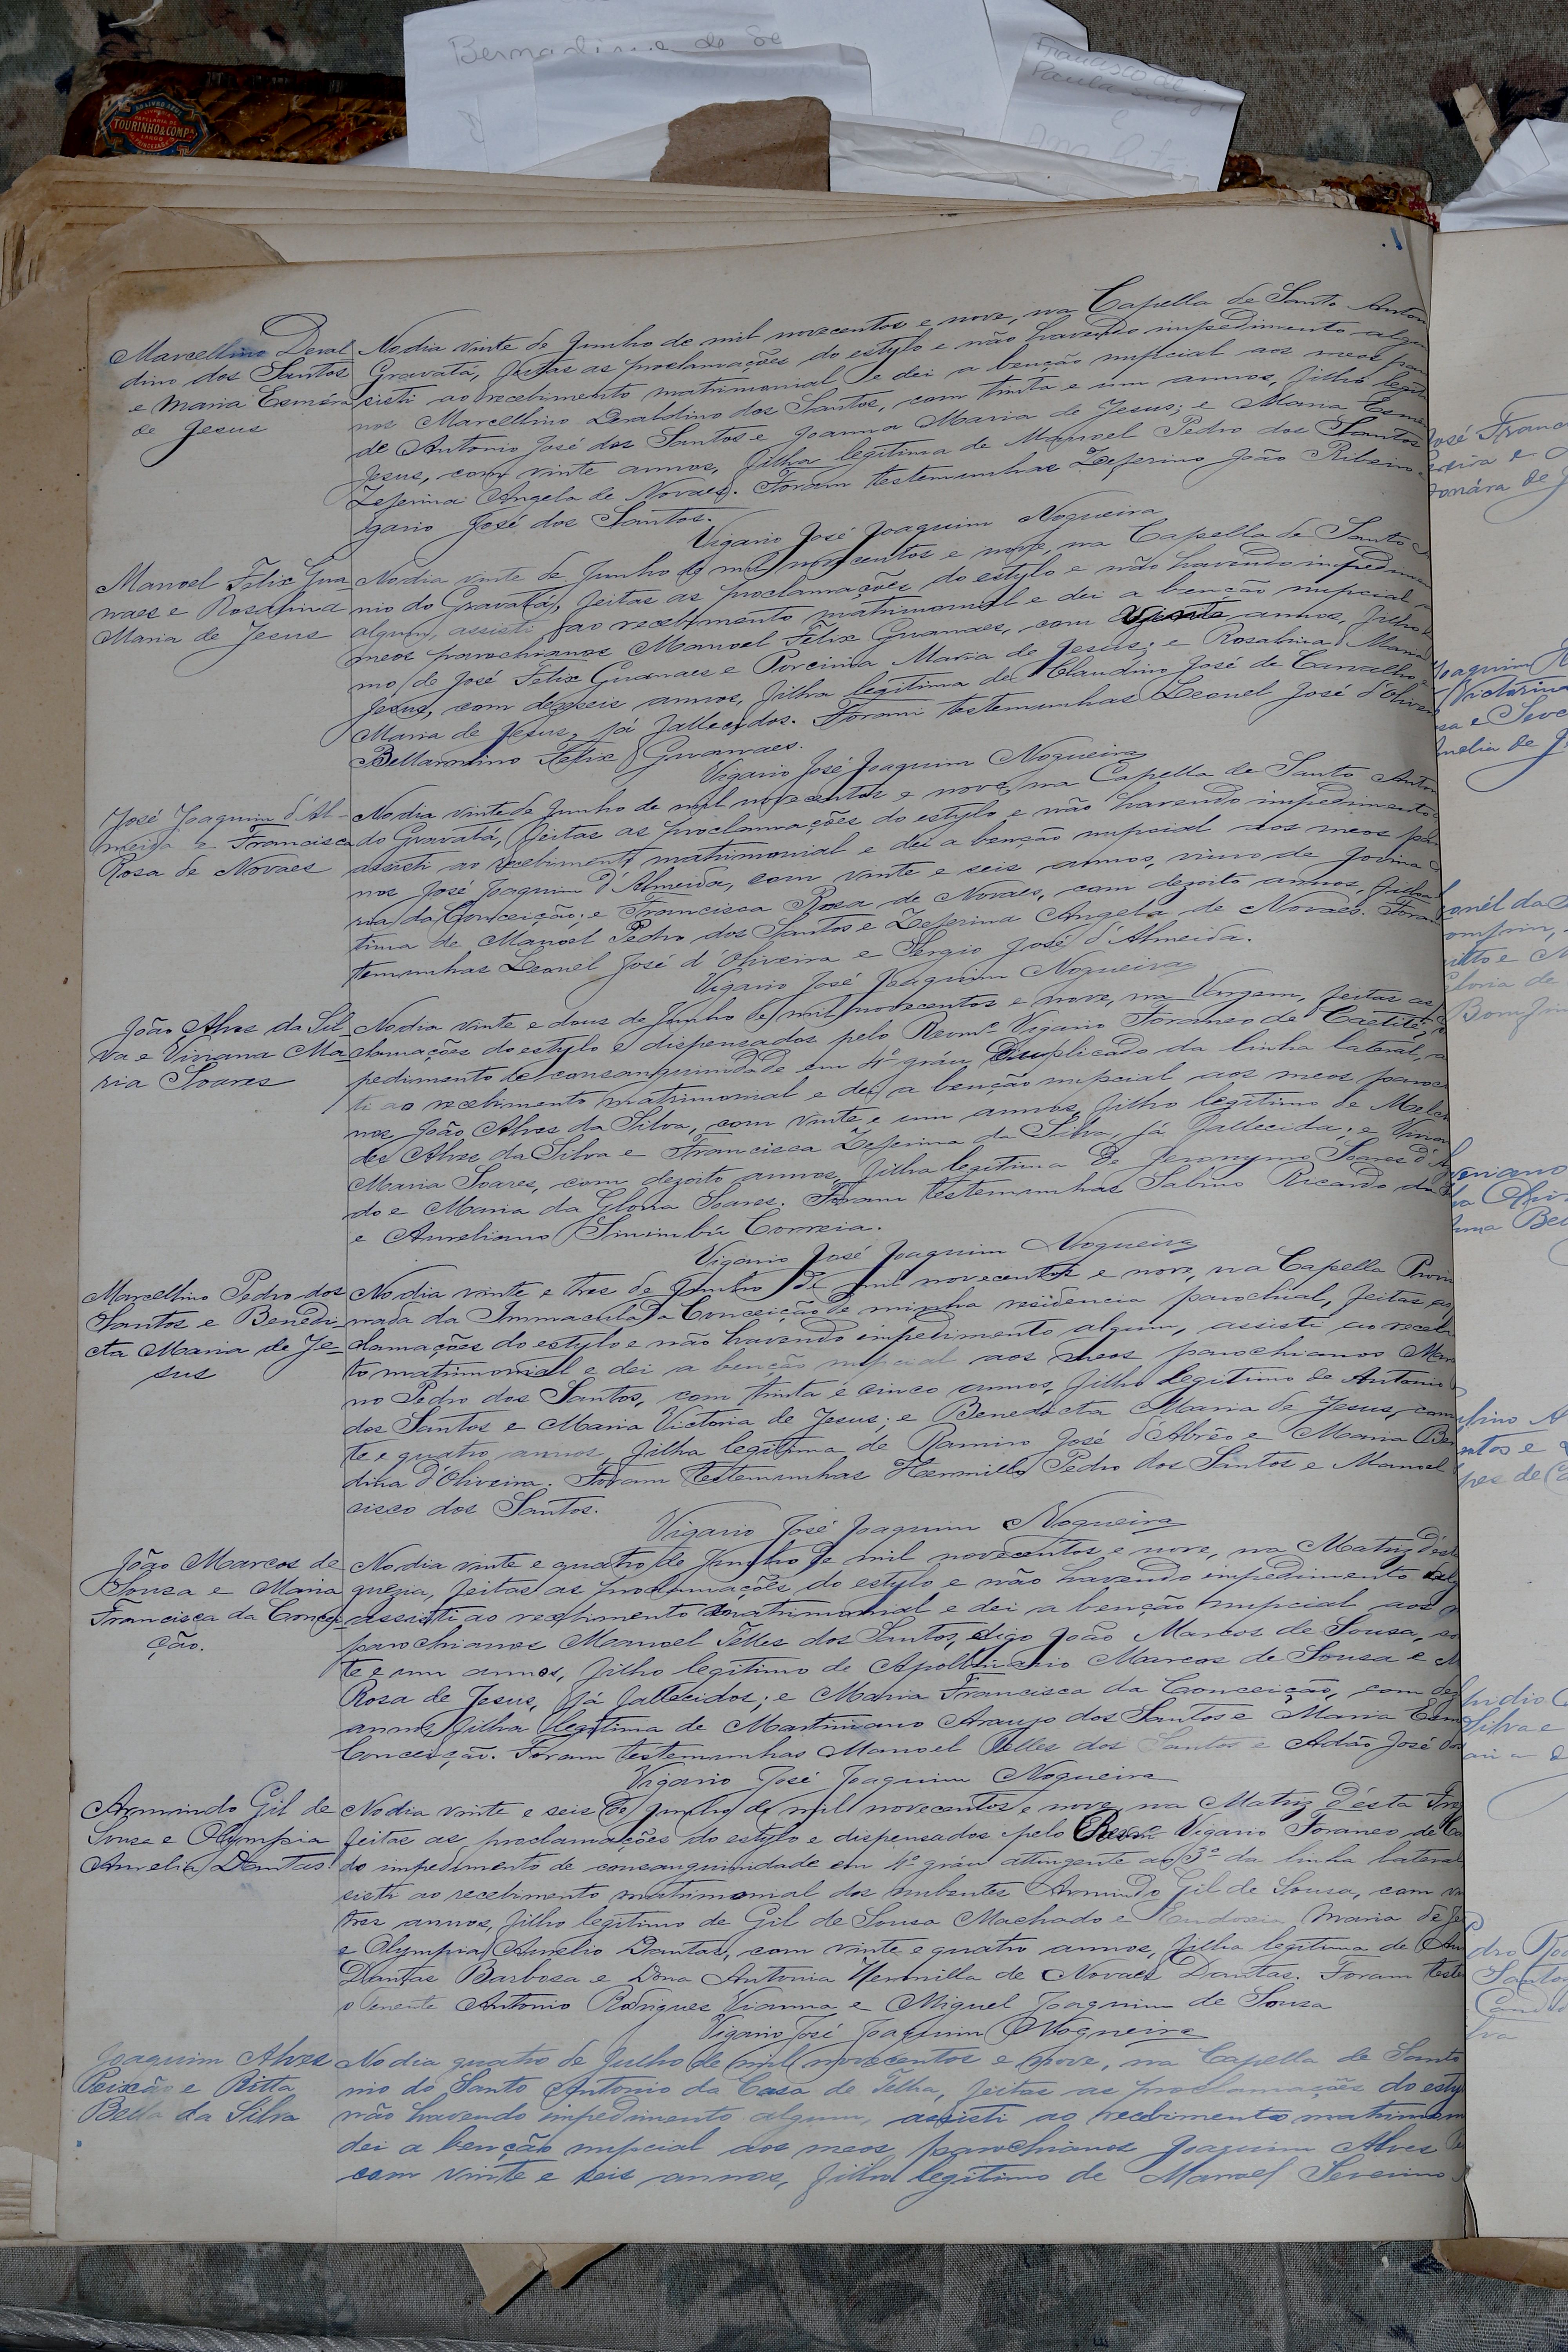 Bernardina de Se
Francisco de
Paula
e
TOURINHO & COMP.
Marcellino Deral
dino dos Santos
e Maria Esméra
de Jesus
No dia vinte de Junho de mil novecentos e nove, na Capella de Santo Anton
Gravatá, feitas as proclamações do estylo e não havendo impedimento algu
sisti ao recebimento matrimonial e dei a benção nupcial aos meos paro
nos Marcellino Deraldino dos Santos, com trinta e um annos, filho legit
de Antonio José dos Santos e Joanna Maria de Jesus; e Maria Esme
Jesus, com vinte annos, filha legitima de Manoel Pedro dos Santos
Zeferina Angela de Novaes. Foram testemunhas Zeferino João Ribeiro
gario José dos Santos.
Vigario José Joaquim Nogueira
Manoel Felix Gua
naes e Rosalina
Maria de Jesus
No dia vinte de Junho de mil novecentos e nove, na Capella de Santo
nio do Gravatá, feitas as proclamações do estylo e não havendo impedime
algum, assisti ao recebimento matrimonial e dei a benção nupcial
meos parochianos Manoel Felix Guanaes, com vinte annos, filho
mo de José Felix Guanaes e Porcinia Maria de Jesus; e Rosalina Maria
Jesus, com dezeseis annos, filha legitima de Claudino José de Carvalho e
Maria de Jesus, já fallecidos. Foram testemunhas Leonel José d'Olivei
Bellarmino Felix Guanaes.
Vigario José Joaquim Nogueira
José Joaquim d'Al-
meida e Francisca
Rosa de Novaes
No dia vinte de Junho de mil novecentos e nove, na Capella de Santo Anton
do Gravatá, feitas as proclamações do estylo e não havendo impedimento
assisti ao recebimento matrimonial e dei a benção nupcial aos meos par
nos José Joaquim d'Almeida, com vinte e seis annos, viuvo de Jovina
ria da Conceição; e Francisca Rosa de Novaes, com dezoito annos, filha
tima de Manoel Pedro dos Santos e Zeferina Angela de Novaes. Foram
temunhas Leonel José d'Oliveira e Sergio José d'Almeida.
Vigario José Joaquim Nogueira
João Alves da Sil
va e Viriana Ma
ria Soares
No dia vinte e dous de Junho de mil novecentos e nove, na Vargem, feitas as
clamações do estylo e dispensados pelo Revmo. Vigario Foraneo de Caetité,
pedimento de consanguinidade em 4º gráu duplicado da linha lateral, a
ti ao recebimento matrimonial e dei a benção nupcial aos meos paroc
nos João Alves da Silva, com vinte e um annos, filho legitimo de Melch
des Alves da Silva e Francisca Zeferina da Silva, já fallecida; e Virian
Maria Soares, com dezoito annos, filha legitima de Jeronymo Soares d'A
do e Maria da Gloria Soares. Foram testemunhas Salino Ricardo da
e Aureliano Sinimbú Correia.
Vigario José Joaquim Nogueira
Marcellino Pedro dos
Santos e Benedi
cta Maria de Je-
sus
No dia vinte e tres de Junho de mil novecentos e nove, na Capella Provi
mada da Immaculada Conceição de minha residencia parochial, feitas as
clamações do estylo e não havendo impedimento algum, assisti ao receb
to matrimonial e dei a benção nupcial aos meos parochianos Mar
no Pedro dos Santos, com trinta e cinco annos, filho legitimo de Antonio
dos Santos e Maria Victoria de Jesus; e Benedicta Maria de Jesus, com
te e quatro annos, filha legitima de Ramiro José d'Abrêo e Maria Ber
dina d'Oliveira. Foram testemunhas Hermillo Pedro dos Santos e Manoel
cisco dos Santos.
Vigario José Joaquim Nogueira
João Marcos de
Sousa e Maria
Francisca da Concei
ção.
No dia vinte e quatro de Junho de mil novecentos e nove, na Matriz d'est
guezia, feitas as proclamações do estylo e não havendo impedimento alg
assisti ao recebimento matrimonial e dei a benção nupcial aos
parochianos Manoel Telles dos Santos, digo João Marcos de Sousa, co
te e um annos, filho legitimo de Apollinario Marcos de Sousa e
Rosa de Jesus, já fallecidos; e Maria Francisca da Conceição, com de
annos, filha legitima de Martiniano Araujo dos Santos e Maria Esm
Conceição. Foram testemunhas Manoel Telles dos Santos e Adão José dos
Vigario José Joaquim Nogueira
Armindo Gil de
Sousa e Olympia
Aurelia Dantas
No dia vinte e seis de Junho de mil novecentos e nove, na Matriz d'ésta Fre
feitas as proclamações do estylo e dispensados pelo Revmo. Vigario Foraneo de Ca
do impedimento de consanguinidade em 4º gráu attingente ao 3º da linha lateral
sisti ao recebimento matrimonial dos nubentes Armindo Gil de Sousa, com vi
tres annos, filho legitimo de Gil de Sousa Machado e Eudoxia Maria de Je
e Olympia Aurelia Dantas, com vinte e quatro annos, filha legitima de
Dantas Barbosa e Dona Antonia Hermilla de Novaes Dantas. Foram teste
o Tenente Antonio Rodrigues Vianna e Miguel Joaquim de Sousa
Vigario José Joaquim Nogueira
Joaquim Alves
Peixão e Ritta
Bella da Silva
No dia quatro de Julho de mil novecentos e nove, na Capella de Santo
nio do Santo Antonio da Casa de Telha, feitas as proclamações do esty
não havendo impedimento algum, assisti ao recebimento matrimon
dei a benção nupcial aos meos parochianos Joaquim Alves
com vinte e seis annos, filho legitimo de Manoel Severino
José Franc
Joaquim
Victorina